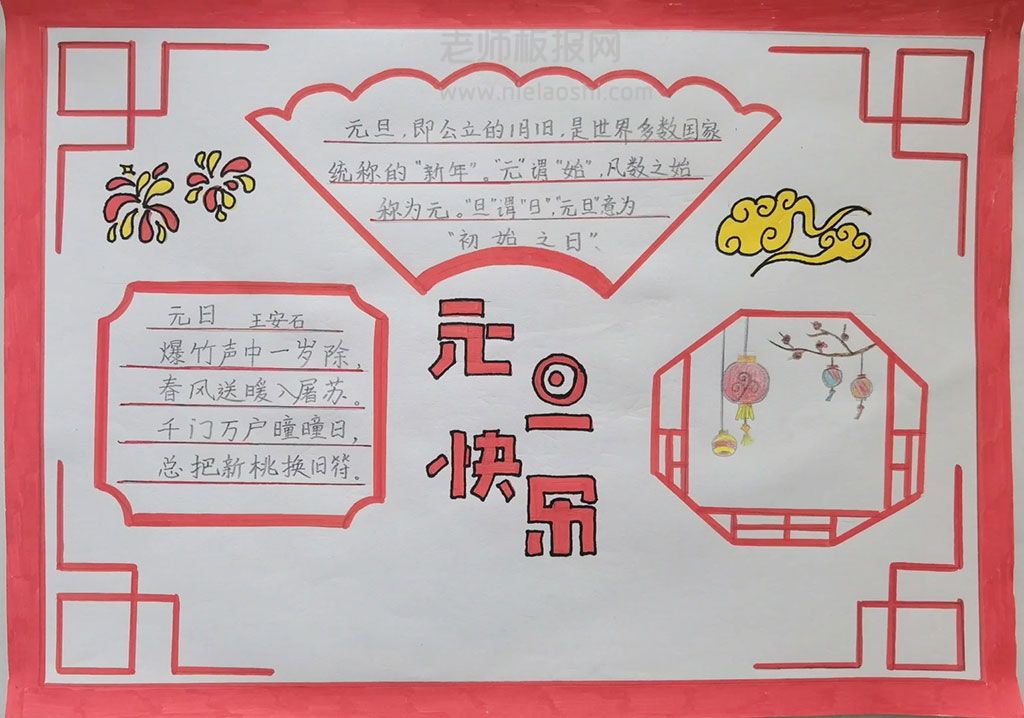 老师板报网
www.nielaoshi.com
元旦,即公立的1月1日,是世界多数国家
统称的"新年"。"元"谓"始",凡数之始
称为元。"旦"谓"日","元旦"意为
"初始之日"。
元旦
快乐
元日 王安石
爆竹声中一岁除,
春风送暖入屠苏。
千门万户曈曈日,
总把新桃换旧符。